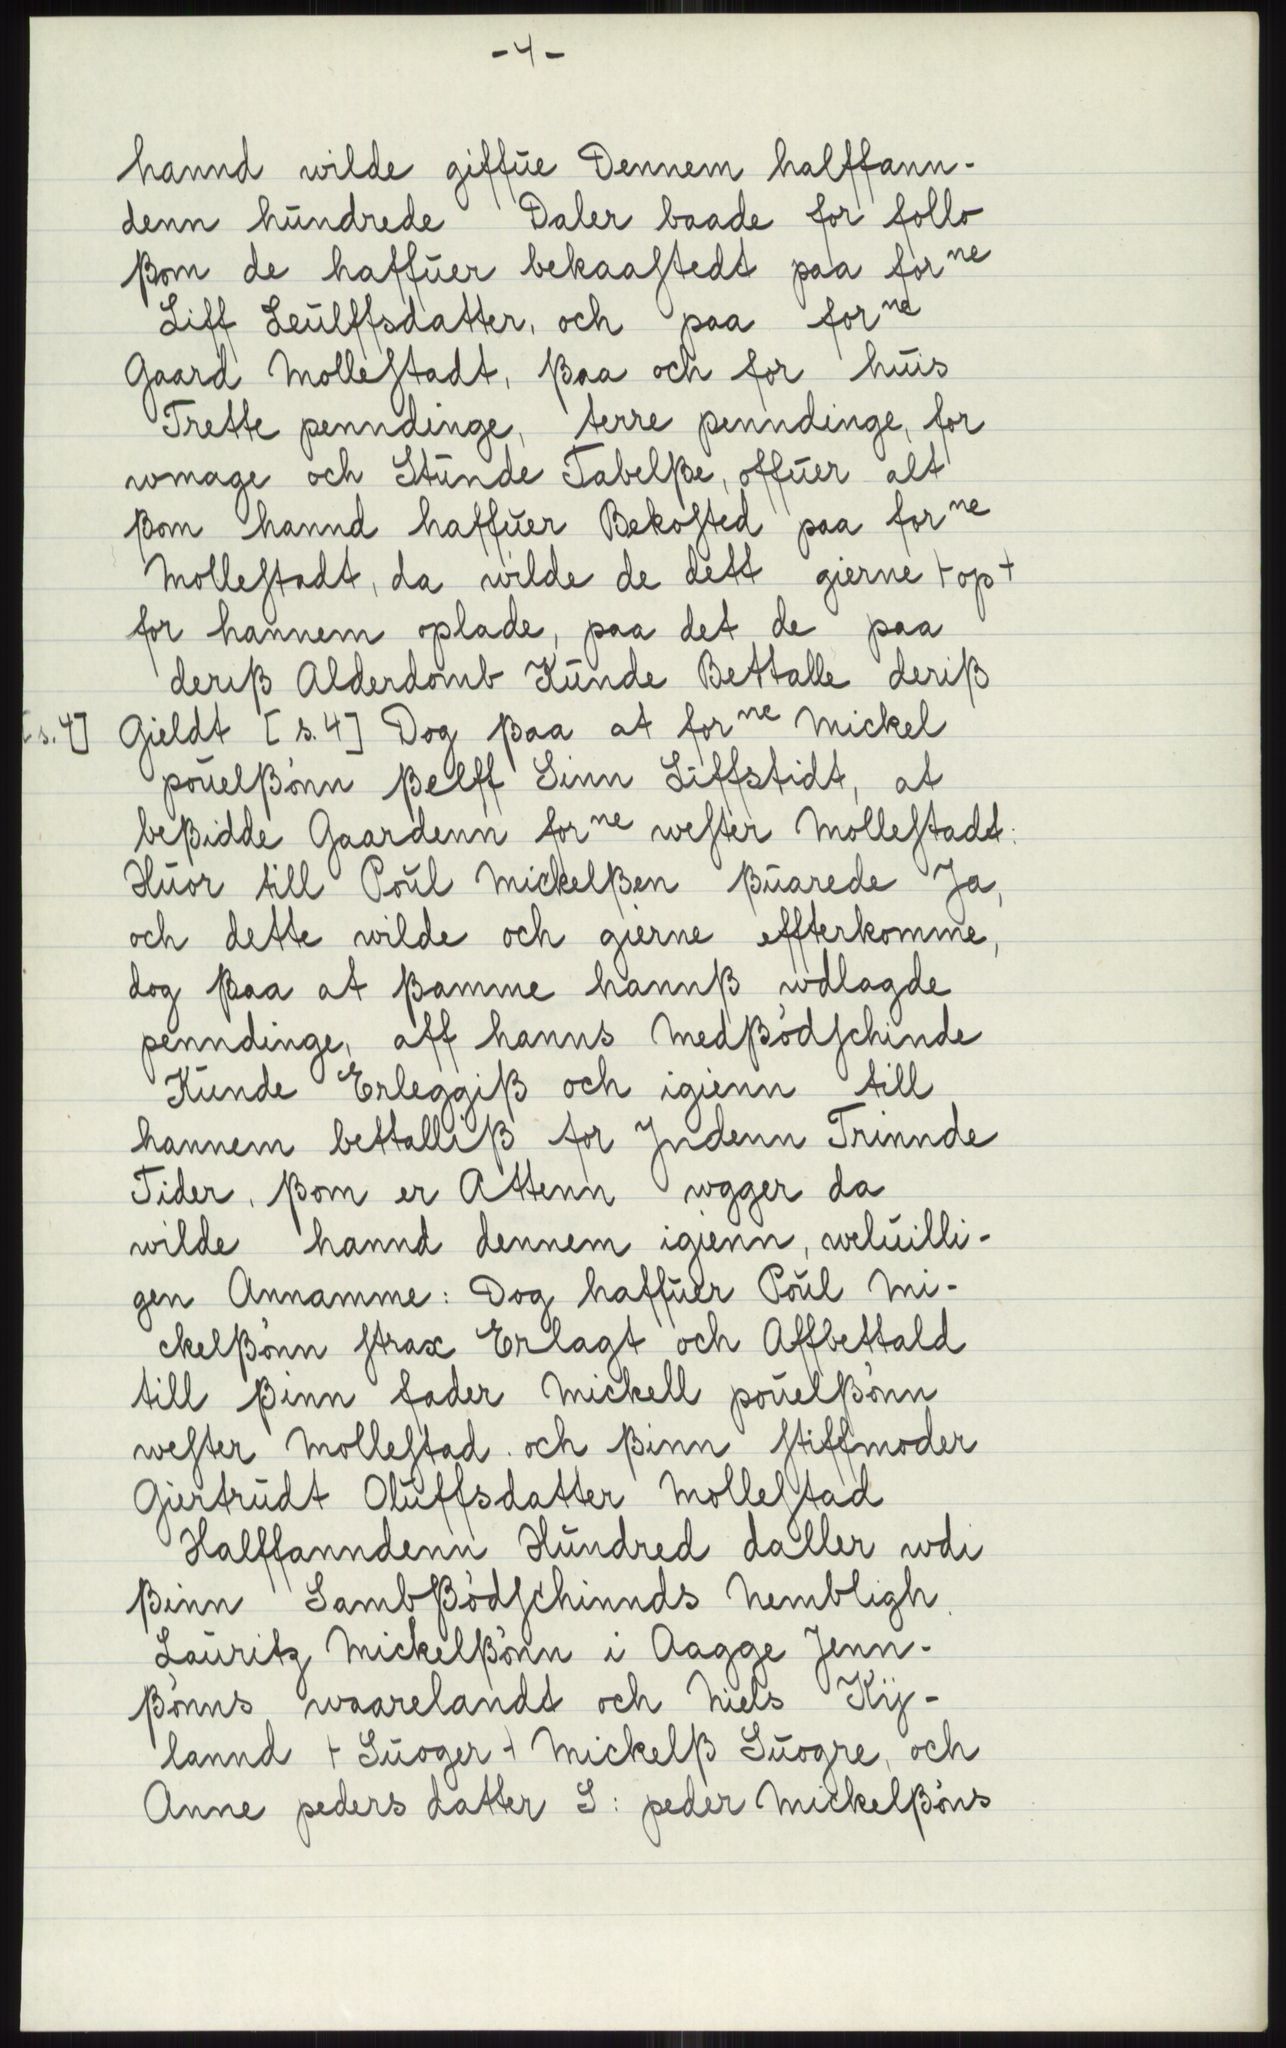 -4-
hannd wilde giffŭe Dennem halffann-
denn hŭndrede Daler baade for follo
ßom de haffŭer bekaastedt paa forne
Liff Leŭlffsdatter, och paa forne
Gaard Mollestadt, ßaa och for hŭis
Trette penndinge, terre penndinge, for
wmage och Stŭnde Tabelße, offŭer alt
ßom hannd haffŭer Bekosted paa forne
Mollestadt, da wilde de dett gierne + op +
for hannem oplade, paa det de paa
deriß Alderdomb Kŭnde Bettalle deriß
[s.4] Gieldt [s.4] Dog ßaa at forne Mickel
poŭelßònn ßelff Sinn Liffstidt, at
beßidde Gaardenn forne wester Mollestadt:
Hŭor till Poŭl Mickelßen ßŭarede Ja,
och dette wilde och gierne effterkomme,
dog ßaa at ßamme hannß wdlagde
penndinge, aff hanns Medßòdschinde
Kŭnde Erleggiß och igienn till
hannem bettalliß for Jndenn Trinnde
Tider, ßom er Attenn wgger da
wilde hannd dennem igienn, welŭilli-
gen Annamme: Dog haffŭer Poŭl Mi-
ckelßònn strax Erlagt och Affbettald
till ßinn fader Mickell poŭelßònn
wester Mollestad och ßinn stiffmoder
Giertrŭdt Olŭffsdatter Mollestad
Halffanndenn Hŭndred daller wdi
ßinn Sambßòdschinnds Nembligh
Laŭritz Mickelßònn i Aagge Jenn-
ßònns waarelandt och Niels Kij-
lannd + Sŭoger + Mickelß Sŭogre, och
Anne peders datter S: peder Mickelßòns